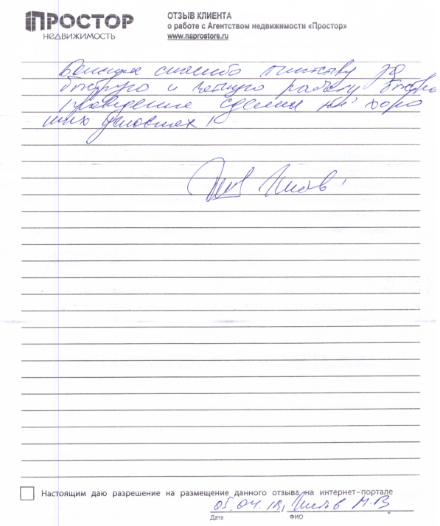 ПРОСТОР
НЕДВИЖИМОСТЬ
ОТЗЫВ КЛИЕНТА
о работе с Агентством недвижимости «Простор»
www.naprostore.ru
Большое спасибо за
быструю и четкую работу
сделки на хоро
ших условиях
Настоящим даю разрешение на размещение данного отзыва на интернет-портале
05.04.18, М.В
Дата ФИО